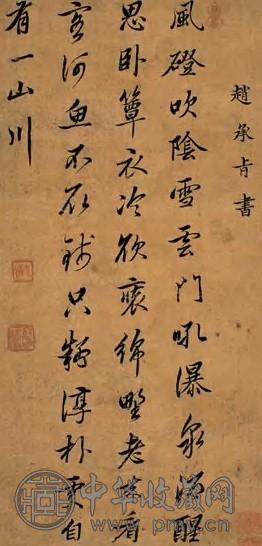 趙承旨書
風磴吹陰雪雲門吼瀑泉酒醒
思卧簟衣冷欲裝綿野老来看
客河魚不取錢只疑淳朴處自
有一山川
中华收藏网